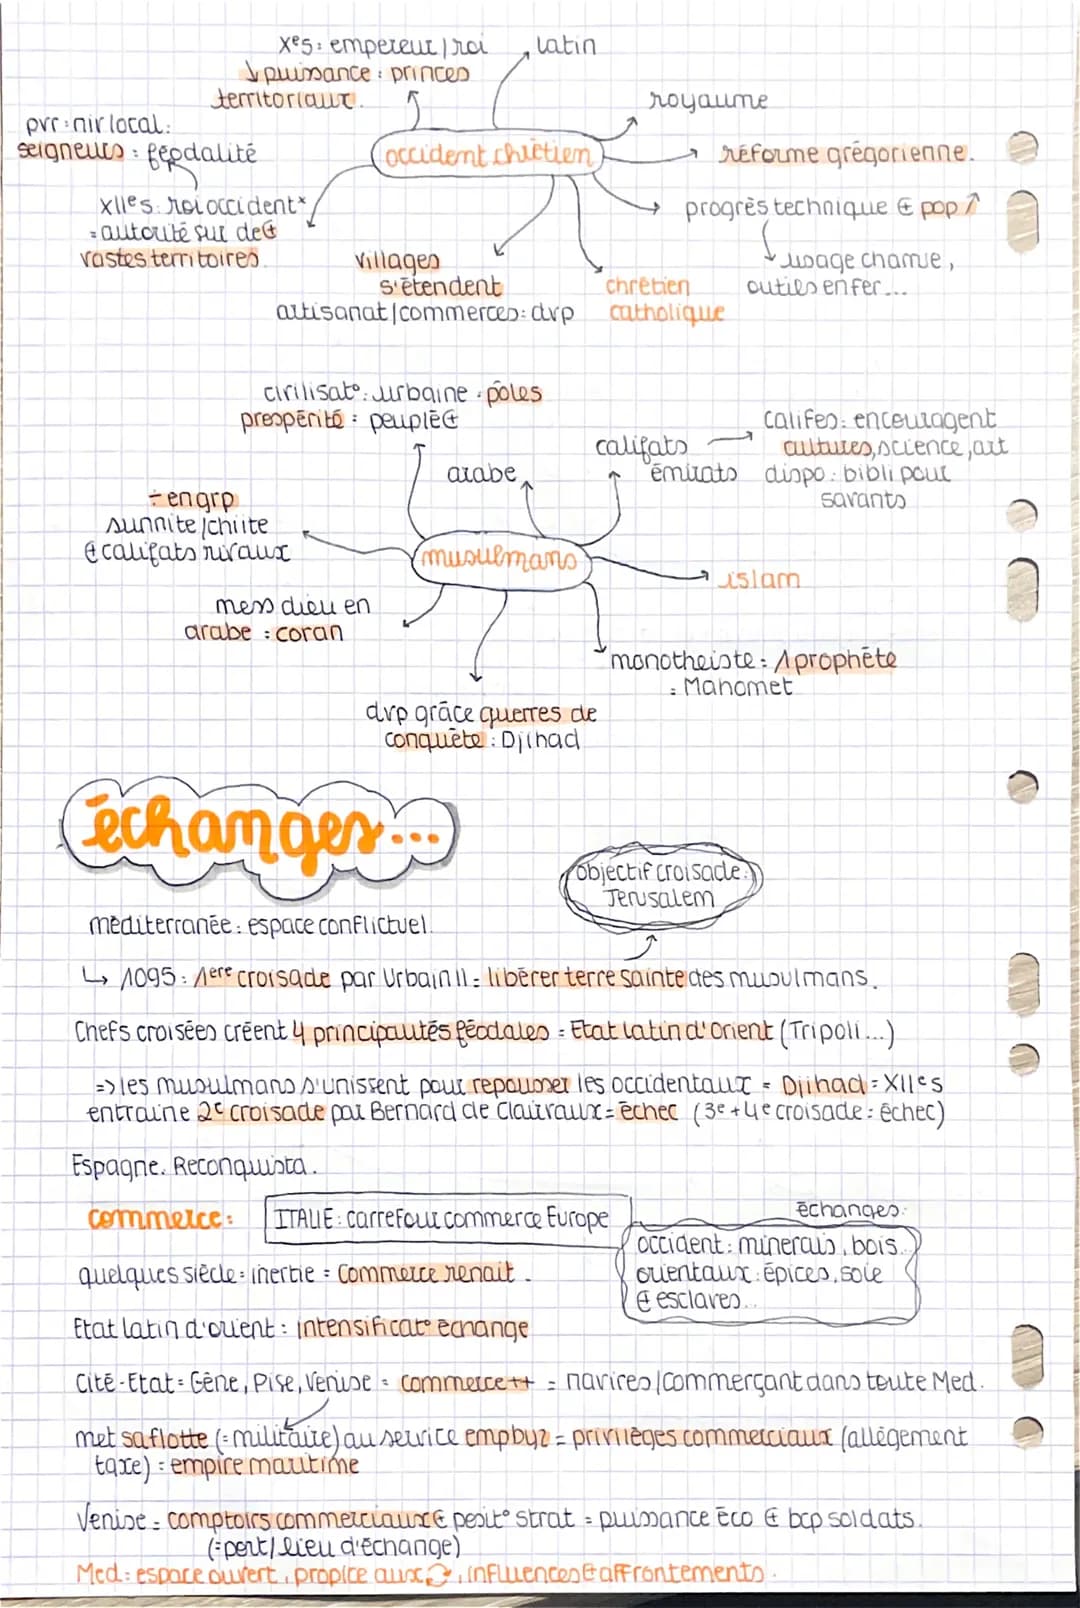 Xes : empereur / roi
↓ puissance : princes
territoriaux.
latin
royaume
réforme grégorienne.
pvr : nir local :
seigneurs : féodalité
occident chrétien
XIIes : roi occident*
= autorité sur de⊕
vastes territoires.
progrès technique & pop ↗
↳ usage charrue,
outils en fer...
villages
s'étendent
artisanat / commerces : dvp
chrétien
catholique
civilisat° : urbaine : pôles
prospérité : peuplé⊕
arabe
califats
émirats
califes : encouragent
cultures, science, art
dispo : bibli pour
savants
÷ en grp
sunnite / chiite
& califats rivaux
musulmans
islam
mess dieu en
arabe : coran
monotheiste : 1 prophète
= Mahomet
dvp grâce guerres de
conquête : Djihad
échanges...
objectif croisade :
Jerusalem
méditerranée : espace conflictuel.
↳ 1095 : 1ère croisade par Urbain II = libérer terre sainte des musulmans.
Chefs croisées créent 4 principautés féodales = Etat latin d'orient (Tripoli...)
=> les musulmans s'unissent pour repousser les occidentaux = Djihad = XIIes
entraine 2e croisade par Bernard de Clairvaux = échec (3e + 4e croisade : échec)
Espagne. Reconquista.
commerce :
ITALIE : carrefour commerce Europe
échanges :
occident : minerais, bois..
orientaux : épices, soie
& esclaves..
quelques siècle = inertie = commerce renait.
Etat latin d'orient : intensificat° échange
Cité-Etat = Gène, Pise, Venise = commerce ++ = navires / commerçant dans toute Med.
met sa flotte (= militaire) au service emp byz = privilèges commerciaux (allègement
taxe) = empire maritime
Venise = comptoirs commerciaux & posit° strat = puissance éco & bcp soldats.
(= port / lieu d'échange)
Med : espace ouvert, propice aux ⟳, influences & affrontements.